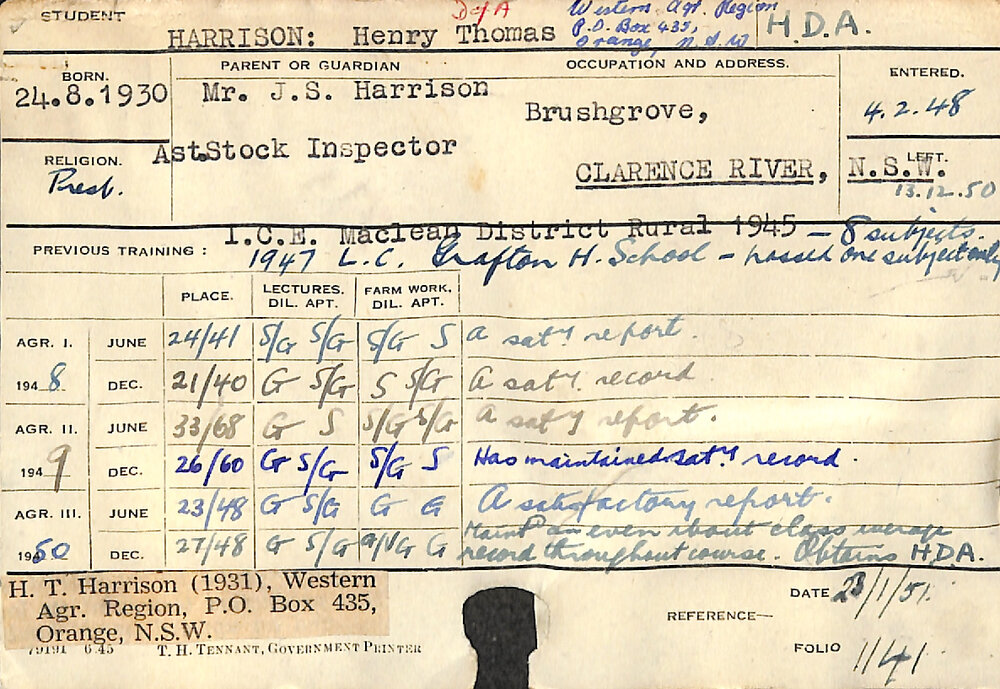 STUDENT
HARRISON: Henry Thomas
D of A
Western Agr. Region
P.O. Box 435,
Orange, N.S.W
H.D.A.
BORN.
24.8.1930
PARENT OR GUARDIAN
OCCUPATION AND ADDRESS.
ENTERED.
Mr. J.S. Harrison
Brushgrove,
4.2.48
RELIGION.
Presb.
Ast.Stock Inspector
CLARENCE RIVER, N.S.W.
LEFT.
13.12.50
PREVIOUS TRAINING :
I.C.E. Maclean District Rural 1945 – 8 subjects.
1947 L.C. Grafton H. School – passed one subject only
PLACE. LECTURES. DIL. APT. FARM WORK. DIL. APT.
AGR. I. JUNE 24/41 S/G S/G S/G S A saty report.
1948 DEC. 21/40 G S/G S S/G A saty. record.
AGR. II. JUNE 33/68 G S S/G S/G A saty report.
1949 DEC. 26/60 G S/G S/G S Has maintained saty record.
AGR. III. JUNE 23/48 G S/G G G A satisfactory report.
1950 DEC. 27/48 G S/G G/VG G Maintd an even about class average
record throughout course. Obtains HDA.
H. T. Harrison (1931), Western
Agr. Region, P.O. Box 435,
Orange, N.S.W.
DATE 23/1/51.
REFERENCE—
FOLIO 1/41
79191 6.45 T. H. TENNANT, GOVERNMENT PRINTER